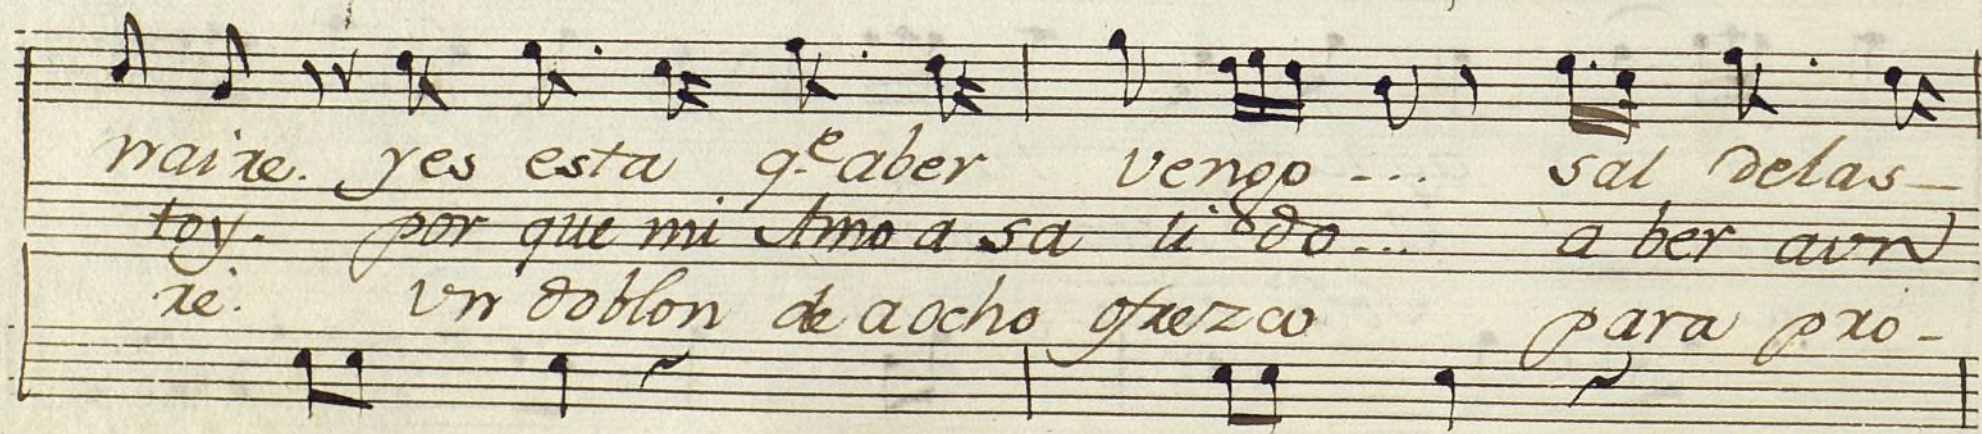 naire. yes esta q.e aber vengo... sal delas-
toy. por que mi Amo a sa li do... a ber aun
re. Un doblon de a ocho ofrezco para pro-